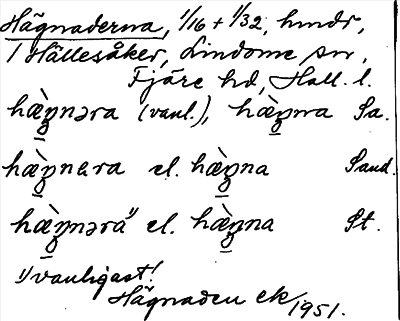 Hägnaderna, 1/16 + 1/32, hmdr,
/ Hällesåker, Lindome sn,
Fjäre hd, Hall. l.
hæ̀ŋnəra (vanl.), hæ̀ŋna Sa.
hæ̀ŋnara el. hæ̀ŋna Sand.
hæ̀ŋnəra¹⁾ el. hæ̀ŋna St.
1) vanligast!
Hägnaden ek 1951.